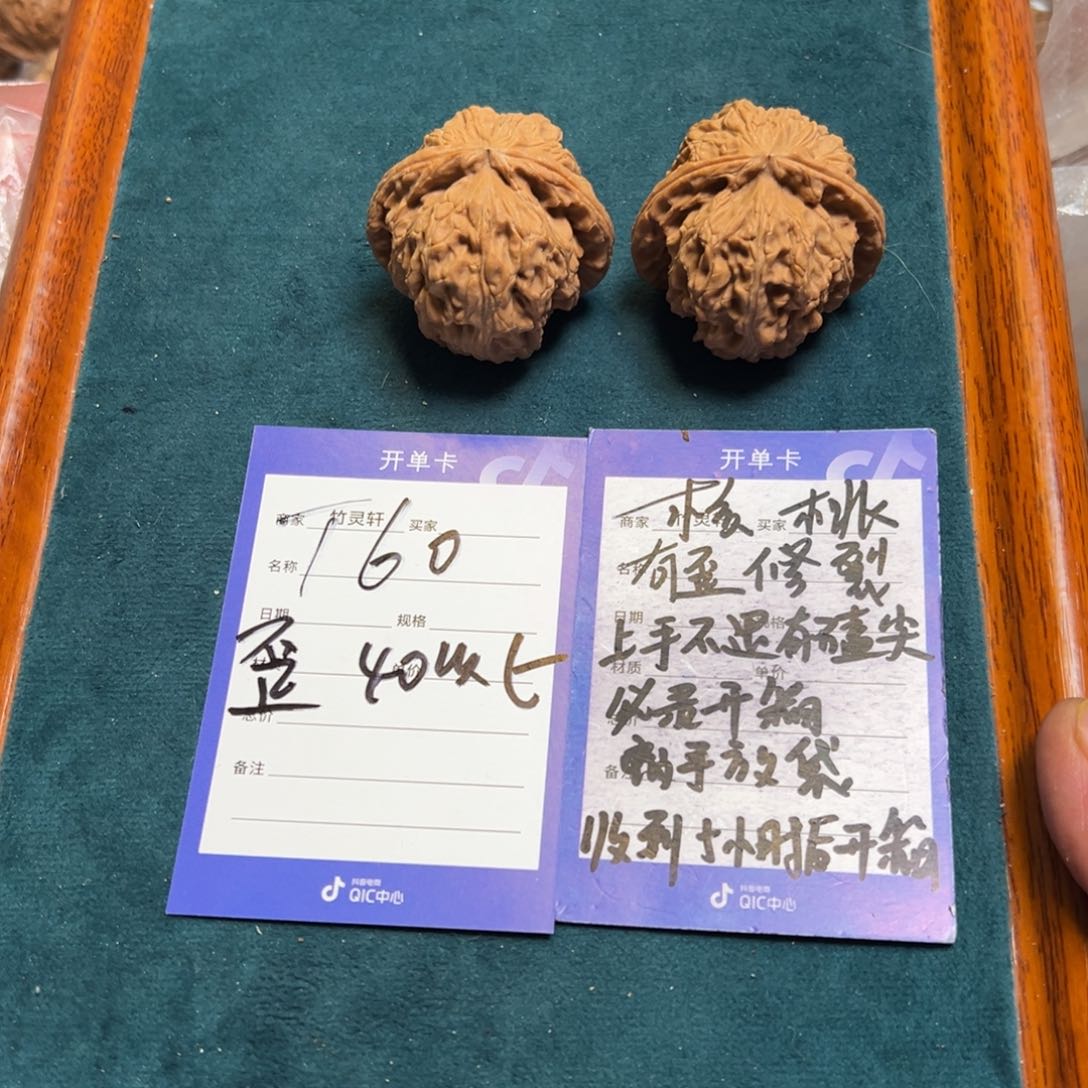 开单卡
商家 竹灵轩 买家
T60
名称
日期 规格
歪 40以上
总价
备注
抖音电商
QIC中心
开单卡
商家 买家
核桃
有歪修裂
上手不退有磕尖
材质 单价
必录开箱
备注
勤手放袋
收到1小时后开箱
抖音电商
QIC中心